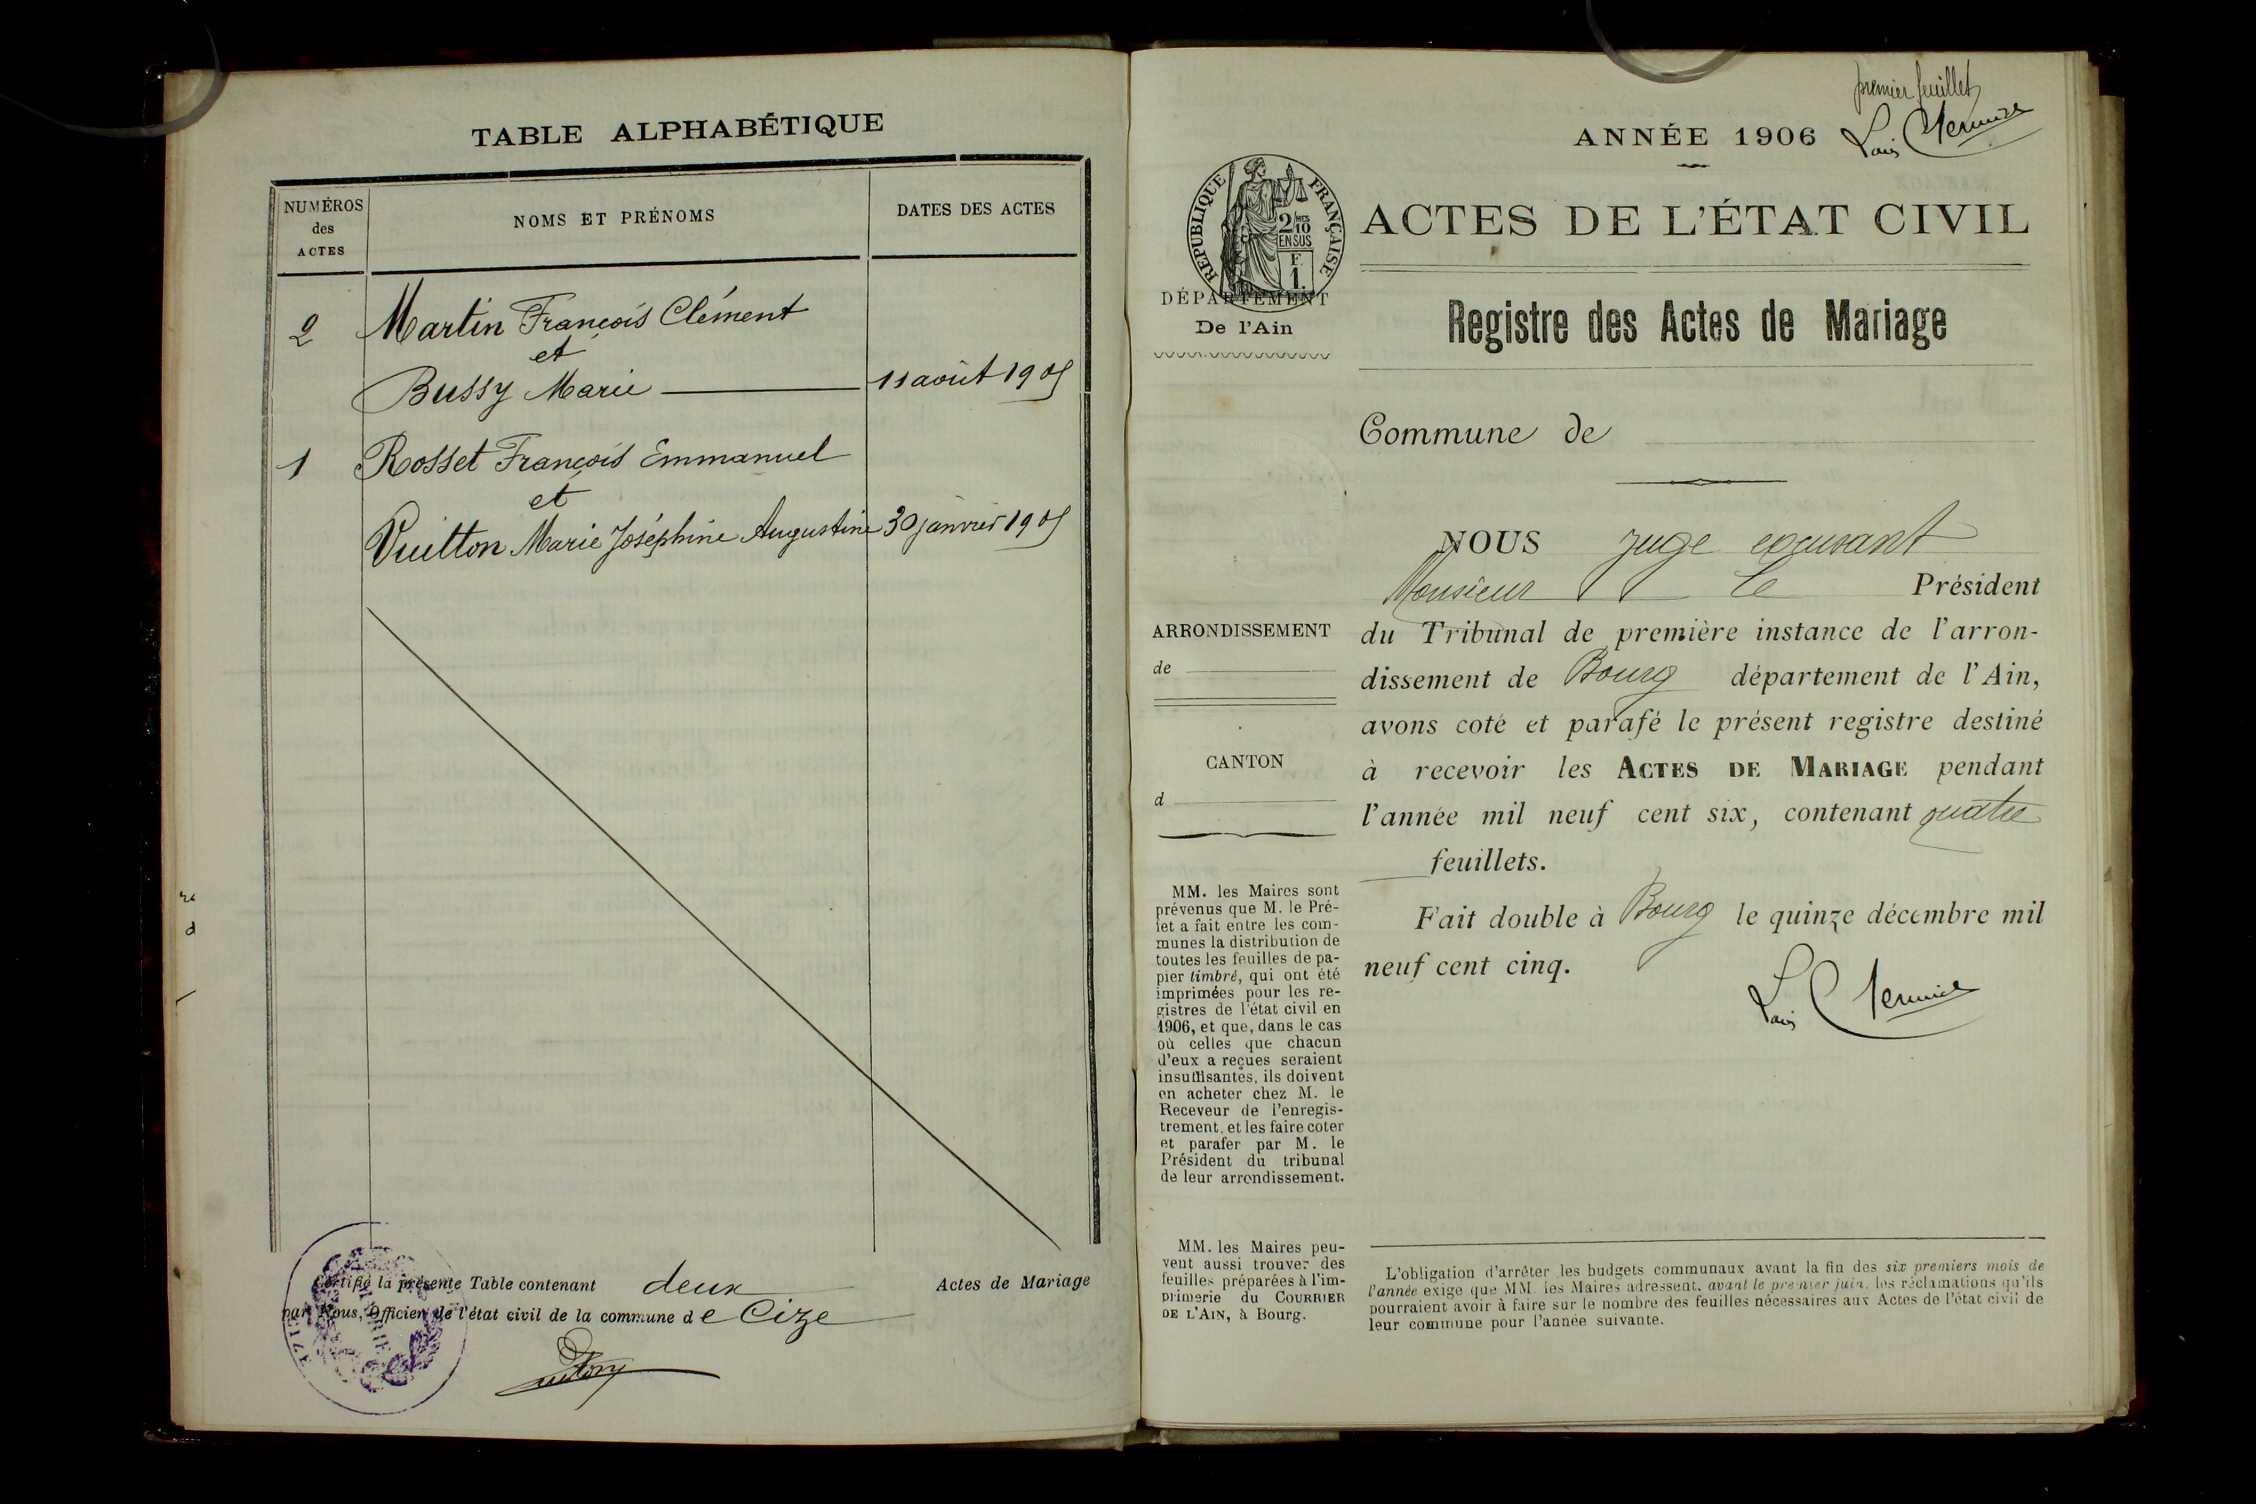 TABLE ALPHABÉTIQUE
NUMÉROS
des
ACTES
NOMS ET PRÉNOMS
DATES DES ACTES
2 Martin François Clément
et
Bussy Marie 11 août 1905
1 Rosset François Emmanuel
et
Vuitton Marie Joséphine Augustine 30 janvier 1905
Certifié la présente Table contenant deux Actes de Mariage
par Nous, Officier de l'état civil de la commune de Cize
premier feuillet
ANNÉE 1906
RÉPUBLIQUE FRANÇAISE
2/10
EN SUS
F.
1.
ACTES DE L'ÉTAT CIVIL
DÉPARTEMENT
De l'Ain
Registre des Actes de Mariage
Commune de
NOUS juge excusant
Monsieur le Président
ARRONDISSEMENT
de
CANTON
d
du Tribunal de première instance de l'arron-
dissement de Bourg département de l'Ain,
avons coté et parafé le présent registre destiné
à recevoir les ACTES DE MARIAGE pendant
l'année mil neuf cent six, contenant quatre
feuillets.
Fait double à Bourg le quinze décembre mil
neuf cent cinq.
MM. les Maires sont
prévenus que M. le Pré-
fet a fait entre les com-
munes la distribution de
toutes les feuilles de pa-
pier timbré, qui ont été
imprimées pour les re-
gistres de l'état civil en
1906, et que, dans le cas
où celles que chacun
d'eux a reçues seraient
insuffisantes, ils doivent
en acheter chez M. le
Receveur de l'enregis-
trement, et les faire coter
et parafer par M. le
Président du tribunal
de leur arrondissement.
MM. les Maires peu-
vent aussi trouver des
feuilles préparées à l'im-
primerie du COURRIER
DE L'AIN, à Bourg.
L'obligation d'arrêter les budgets communaux avant la fin des six premiers mois de
l'année exige que MM. les Maires adressent, avant le premier juin, les réclamations qu'ils
pourraient avoir à faire sur le nombre des feuilles nécessaires aux Actes de l'état civil de
leur commune pour l'année suivante.